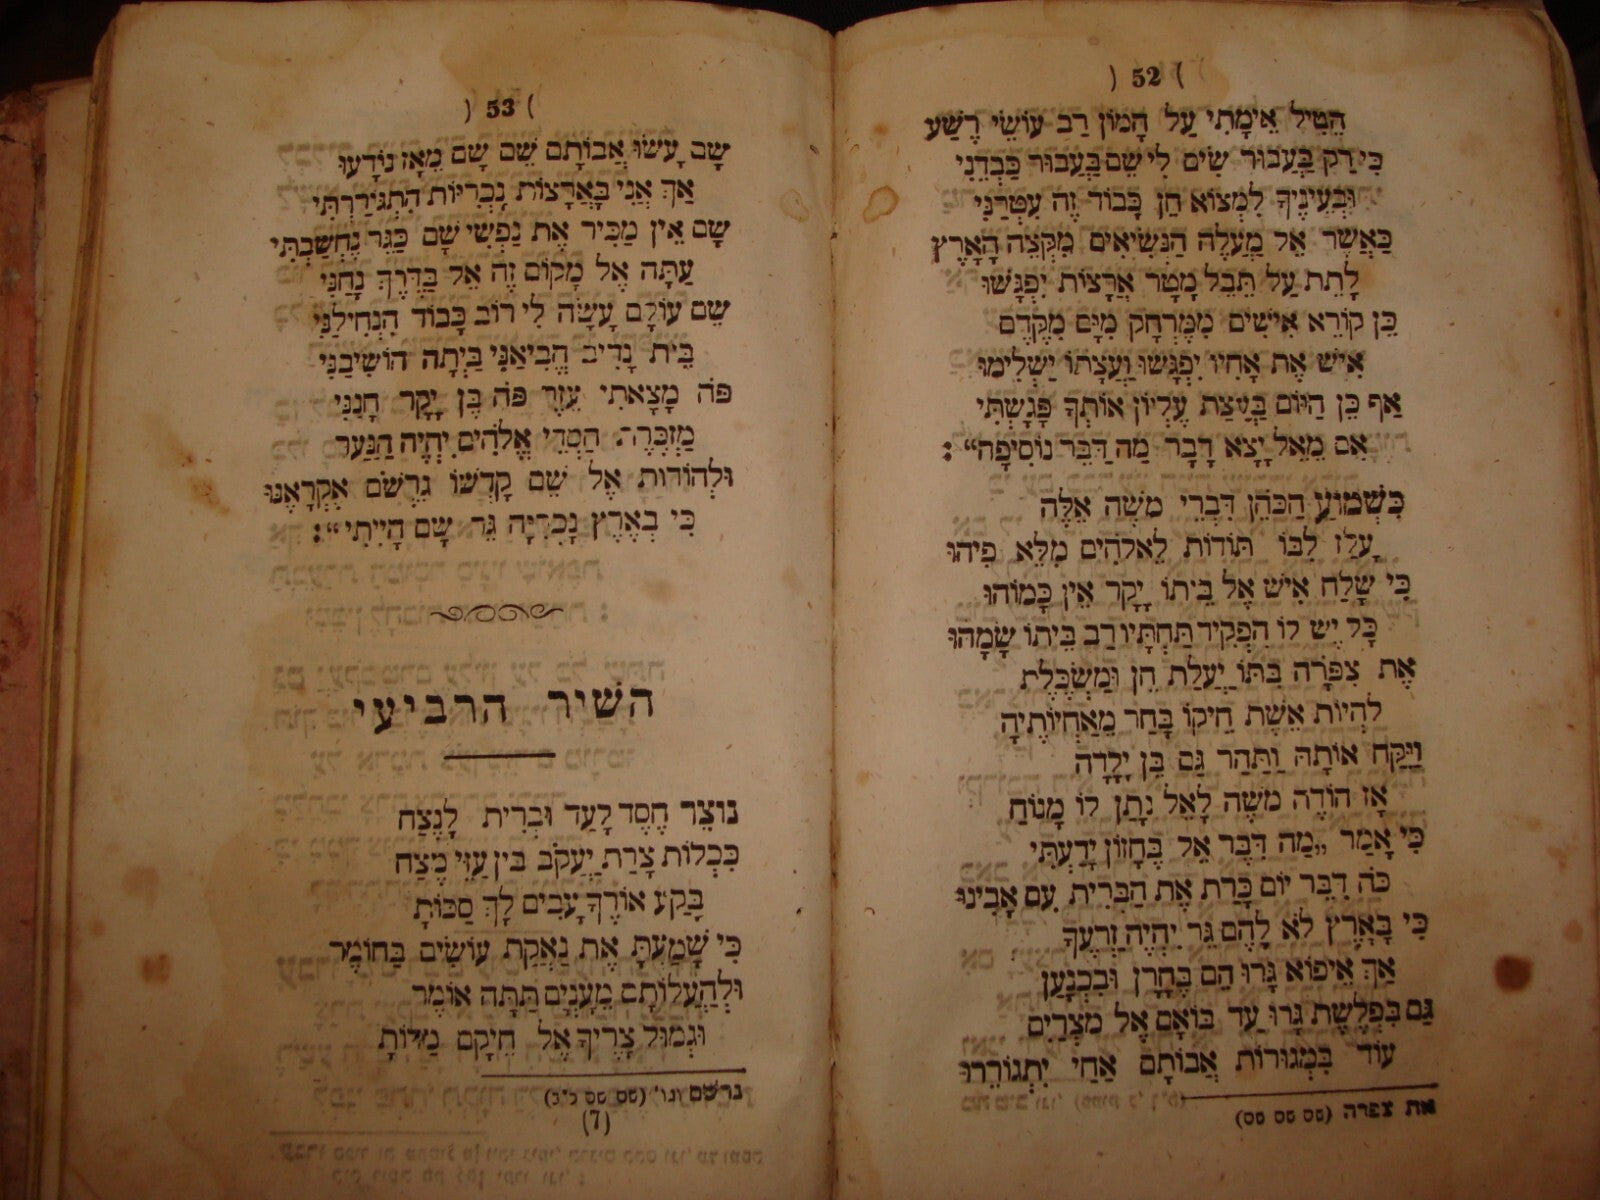 ( 52 )
הִטִּיל אֵימָתִי עַל הָמוֹן רַב עוֹשֵׂי רֶשַׁע
כִּי רַק בַּעֲבוּר שִׂים לִי שֵׁם בַּעֲבוּר כַּבְּדֵנִי
וּבְעֵינֶיךָ לִמְצוֹא חֵן כָּבוֹד זֶה עִטְּרַנִי
כַּאֲשֶׁר אֵל מַעֲלֶה הַנְּשִׂיאִים מִקְצֵה הָאָרֶץ
לָתֵת עַל תֵּבֵל מָטָר אֲרָצוֹת יִפְגָּשׁוּ
כֵּן קוֹרֵא אִישִׁים מִמֶּרְחָק מִיָּם מִקֶּדֶם
אִישׁ אֶת אָחִיו יִפְגָּשׁוּ וַעֲצָתוֹ יַשְׁלִימוּ
אַף כֵּן הַיּוֹם בַּעֲצַת עֶלְיוֹן אוֹתְךָ פָּגָשְׁתִּי
אִם מֵאֵל יָצָא דָבָר מַה דַּבֵּר נוֹסִיפָה“ :
כִּשְׁמוֹעַ הַכֹּהֵן דִּבְרֵי מֹשֶׁה אֵלֶּה
עָלַז לִבּוֹ תּוֹדוֹת לֵאלֹהִים מִלֵּא פִיהוּ
כִּי שָׁלַח אִישׁ אֶל בֵּיתוֹ יָקָר אֵין כָּמוֹהוּ
כָּל יֶשׁ לוֹ הִפְקִיד תַּחְתָּיו רַב בֵּיתוֹ שָׂמָהוּ
אֶת צִפֹּרָה בִתּוֹ יַעֲלַת חֵן וּמַשְׂכֶּלֶת
לִהְיוֹת אֵשֶׁת חֵיקוֹ בָּחַר מֵאַחְיוֹתֶיהָ
וַיִּקַּח אוֹתָהּ וַתַּהַר גַּם בֵּן יָלָדָה
אָז הוֹדָה מֹשֶׁה לָאֵל נָתַן לוֹ מָנוֹחַ
כִּי אָמַר „מַה דִּבֶּר אֵל בֶּחָזוֹן יָדַעְתִּי
כֹּה דִּבֶּר יוֹם כָּרַת אֶת הַבְּרִית עִם אָבִינוּ
כִּי בָאָרֶץ לֹא לָהֶם גֵּר יִהְיֶה זַרְעֶךָ
אַךְ אֵיפוֹא גָּרוּ הֵם בְּחָרָן וּבִכְנָעַן
גַּם בִּפְלֶשֶׁת גָּרוּ עַד בּוֹאָם אֶל מִצְרַיִם
עוֹד בִּמְגוּרוֹת אֲבוֹתָם אַחַי יִתְגּוֹרֵרוּ
את צפרה (שם שם שם)
( 53 )
שָׁם עָשׂוּ אֲבוֹתָם שֵׁם שָׁם מֵאָז נוֹדָעוּ
אַךְ אֲנִי בָּאֲרָצוֹת נָכְרִיּוֹת הִתְגּוֹרַרְתִּי
שָׁם אֵין מַכִּיר אֶת נַפְשִׁי שָׁם כַּגֵּר נֶחְשַׁבְתִּי
עַתָּה אֶל מָקוֹם זֶה אֵל בַּדֶּרֶךְ נָחַנִי
שֵׁם עוֹלָם עָשָׂה לִי רוֹב כָּבוֹד הִנְחִילַנִי
בֵּית נָדִיב הֱבִיאַנִי בַּיְתָה הוֹשִׁיבַנִי
פֹּה מָצָאתִי עֵזֶר פֹּה בֵּן יָקָר חָנַנִי
מַזְכֶּרֶת חַסְדֵי אֱלֹהִים יִהְיֶה הַנַּעַר
וּלְהוֹדוֹת אֶל שֵׁם קָדְשׁוֹ גֵּרְשֹׁם אֶקְרָאֶנּוּ
כִּי בְאֶרֶץ נָכְרִיָּה גֵּר שָׁם הָיִיתִי“ :
השיר הרביעי
נוֹצֵר חֶסֶד לָעַד וּבְרִית לָנֶצַח
כִּכְלוֹת צָרַת יַעֲקֹב בֵּין עַזֵּי מֶצַח
בָּקַע אוֹרְךָ עָבִים לָךְ סַכּוֹתָ
כִּי שָׁמַעְתָּ אֶת נַאֲקַת עוֹשִׂים בַּחוֹמֶר
וּלְהַעֲלוֹתָם מֵעֳנָיִם תַּתָּה אוֹמֶר
וּגְמוּל צָרֶיךָ אֶל חֵיקָם מַדּוֹתָ
גרשם וגו׳ (שם שם כ״ב)
(7)